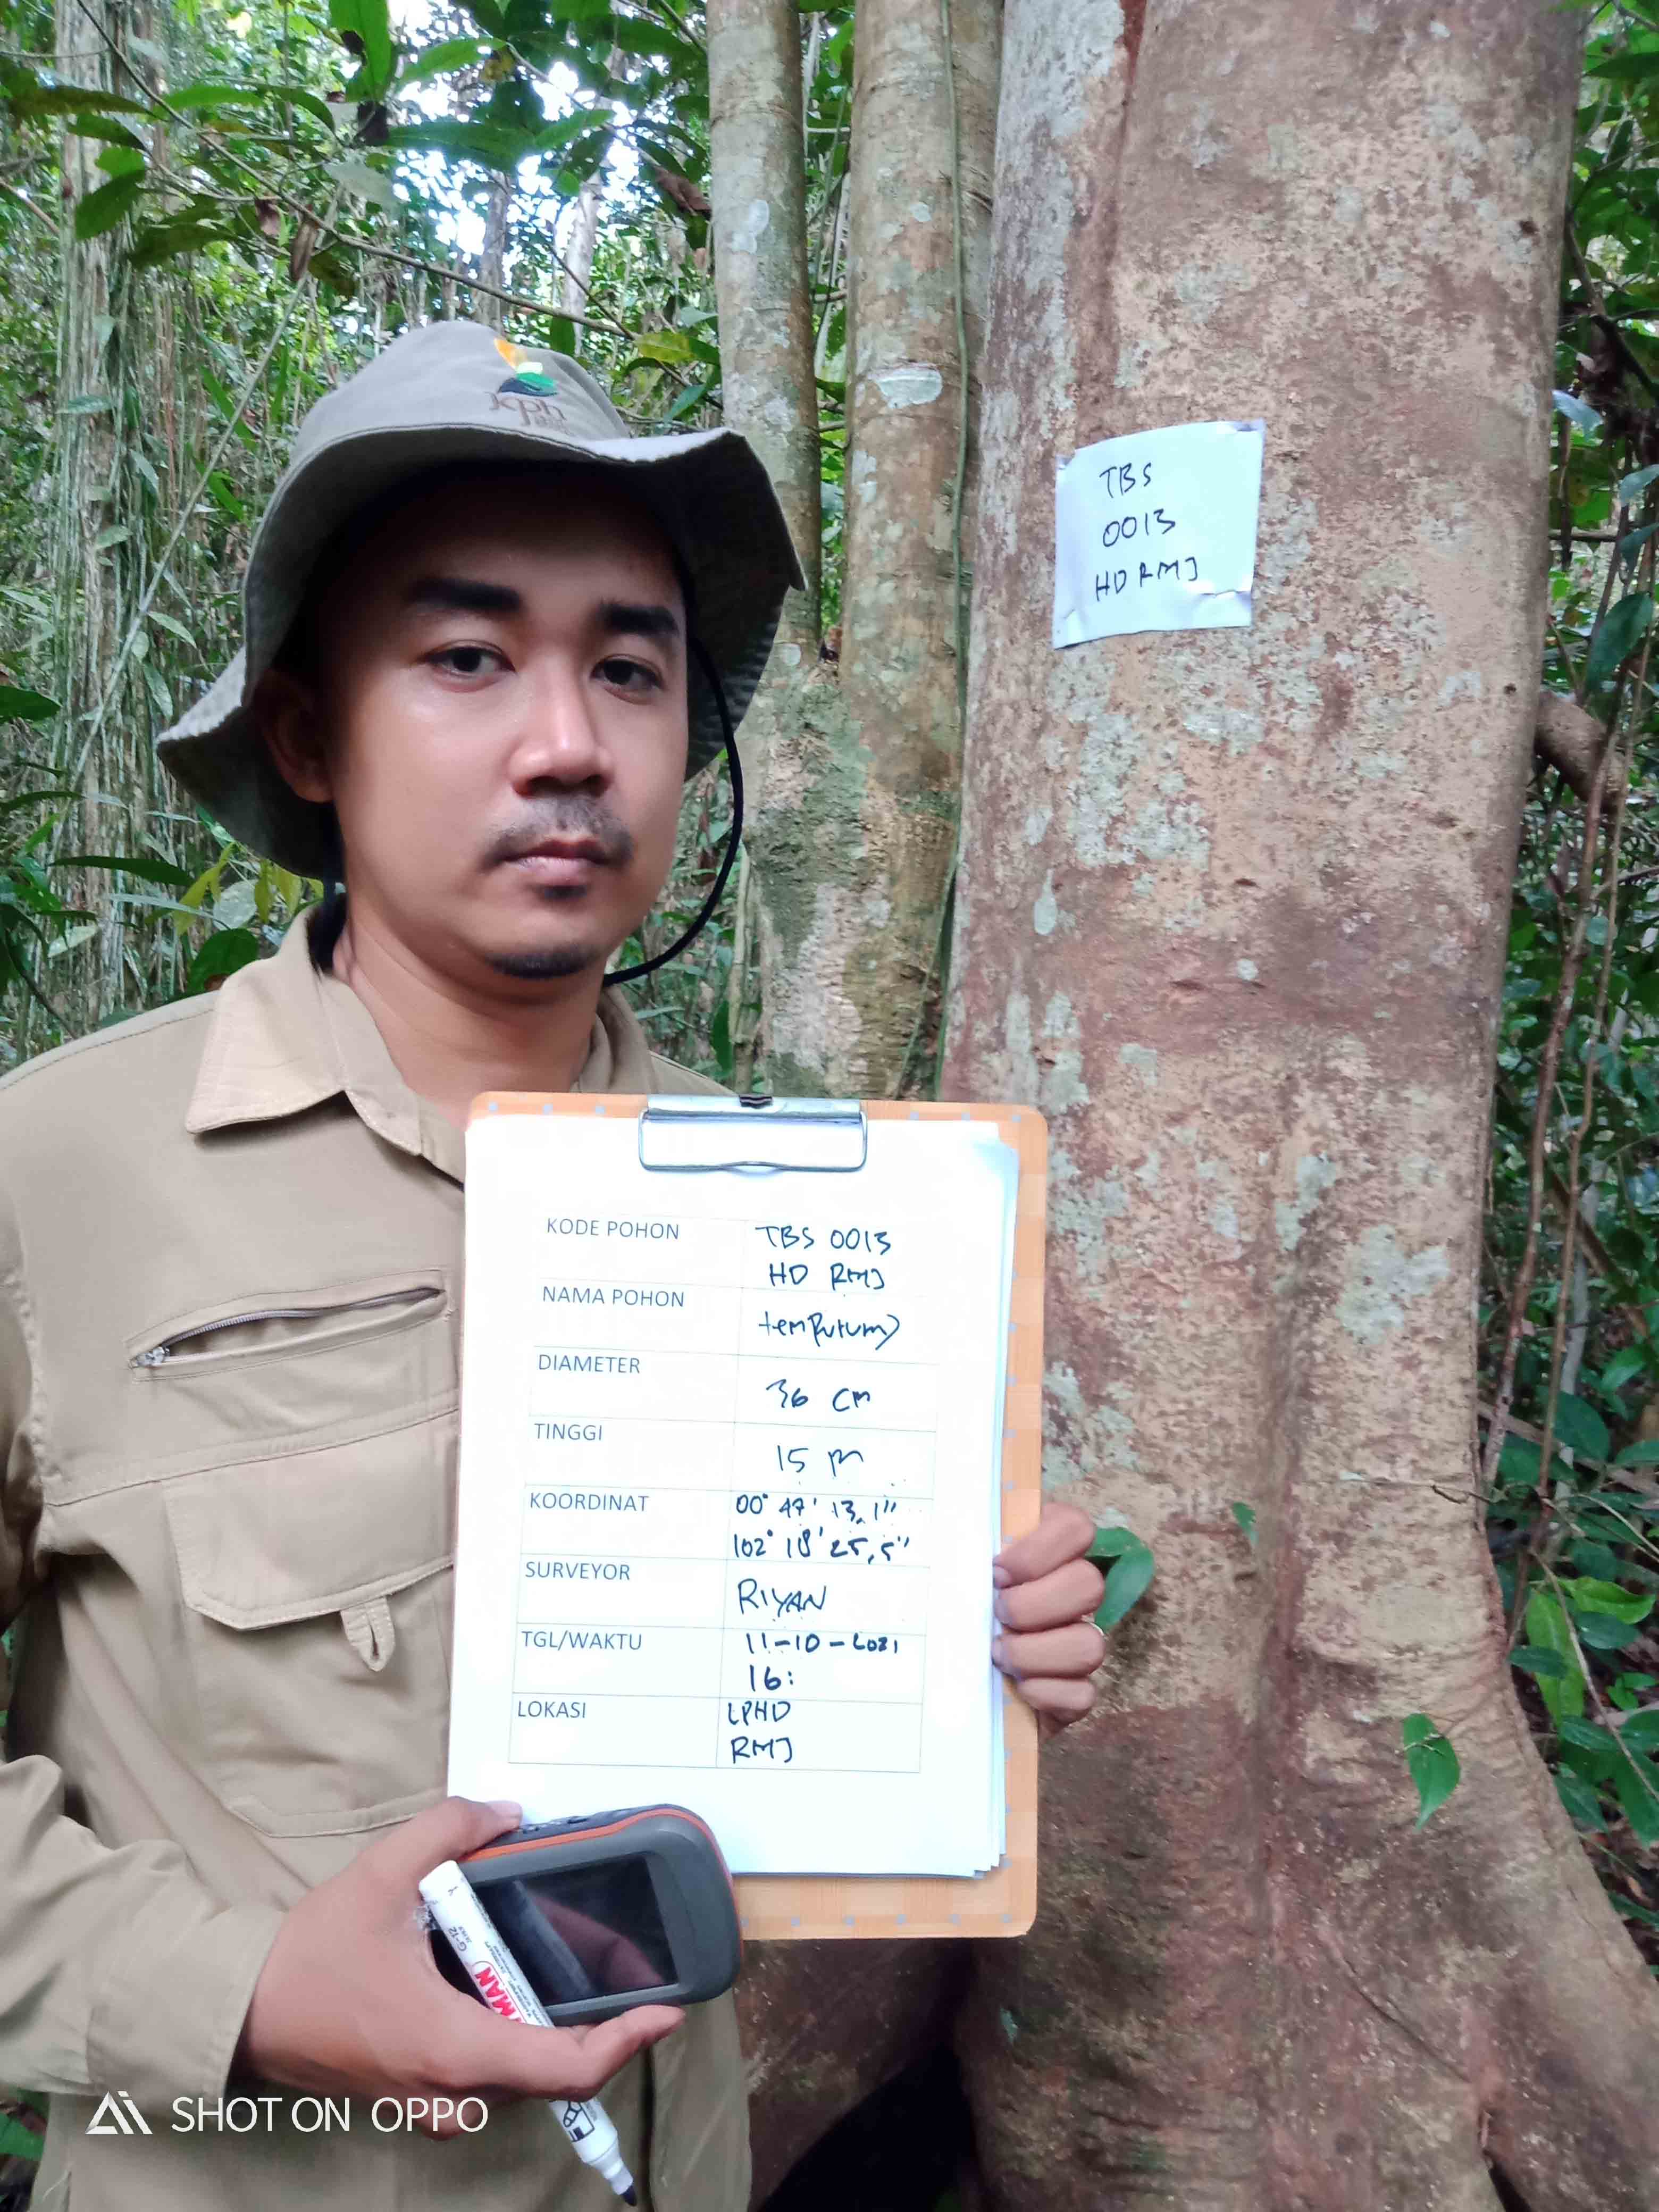 kph
TBS
0013
HD RMJ
KODE POHON TBS 0013
HD RMJ
NAMA POHON
DIAMETER 36 cm
TINGGI 15 m
KOORDINAT 00° 47' 13,1"
102° 18' 25,5"
SURVEYOR RIYAN
TGL/WAKTU 11-10-2021
16:
LOKASI LPHD
RMJ
G-12
SHOT ON OPPO